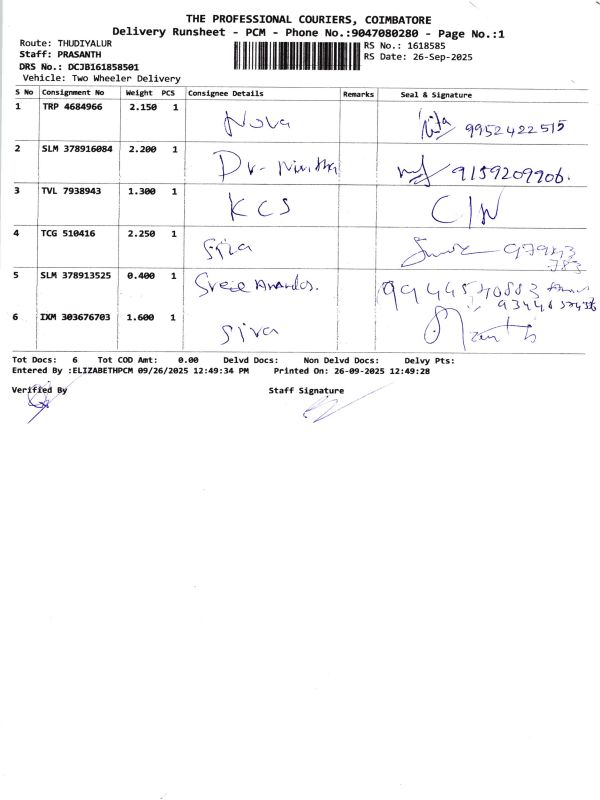 THE PROFESSIONAL COURIERS, COIMBATORE
Delivery Runsheet - PCM - Phone No.:9047080280 - Page No.:1
Route: THUDIYALUR
RS No.: 1618585
Staff: PRASANTH
RS Date: 26-Sep-2025
DRS No.: DCJB161858501
Vehicle: Two Wheeler Delivery
S No Consignment No Weight PCS Consignee Details Remarks Seal & Signature
1 TRP 4684966 2.150 1 Nova 9952422515
2 SLM 378916084 2.200 1 Dr- 9159209906.
3 TVL 7938943 1.300 1 KCS C/N
4 TCG 510416 2.250 1 Siva
5 SLM 378913525 0.400 1 Sree
6 IXM 303676703 1.600 1 Siva
Tot Docs: 6 Tot COD Amt: 0.00 Delvd Docs: Non Delvd Docs: Delvy Pts:
Entered By :ELIZABETHPCM 09/26/2025 12:49:34 PM Printed On: 26-09-2025 12:49:28
Verified By Staff Signature